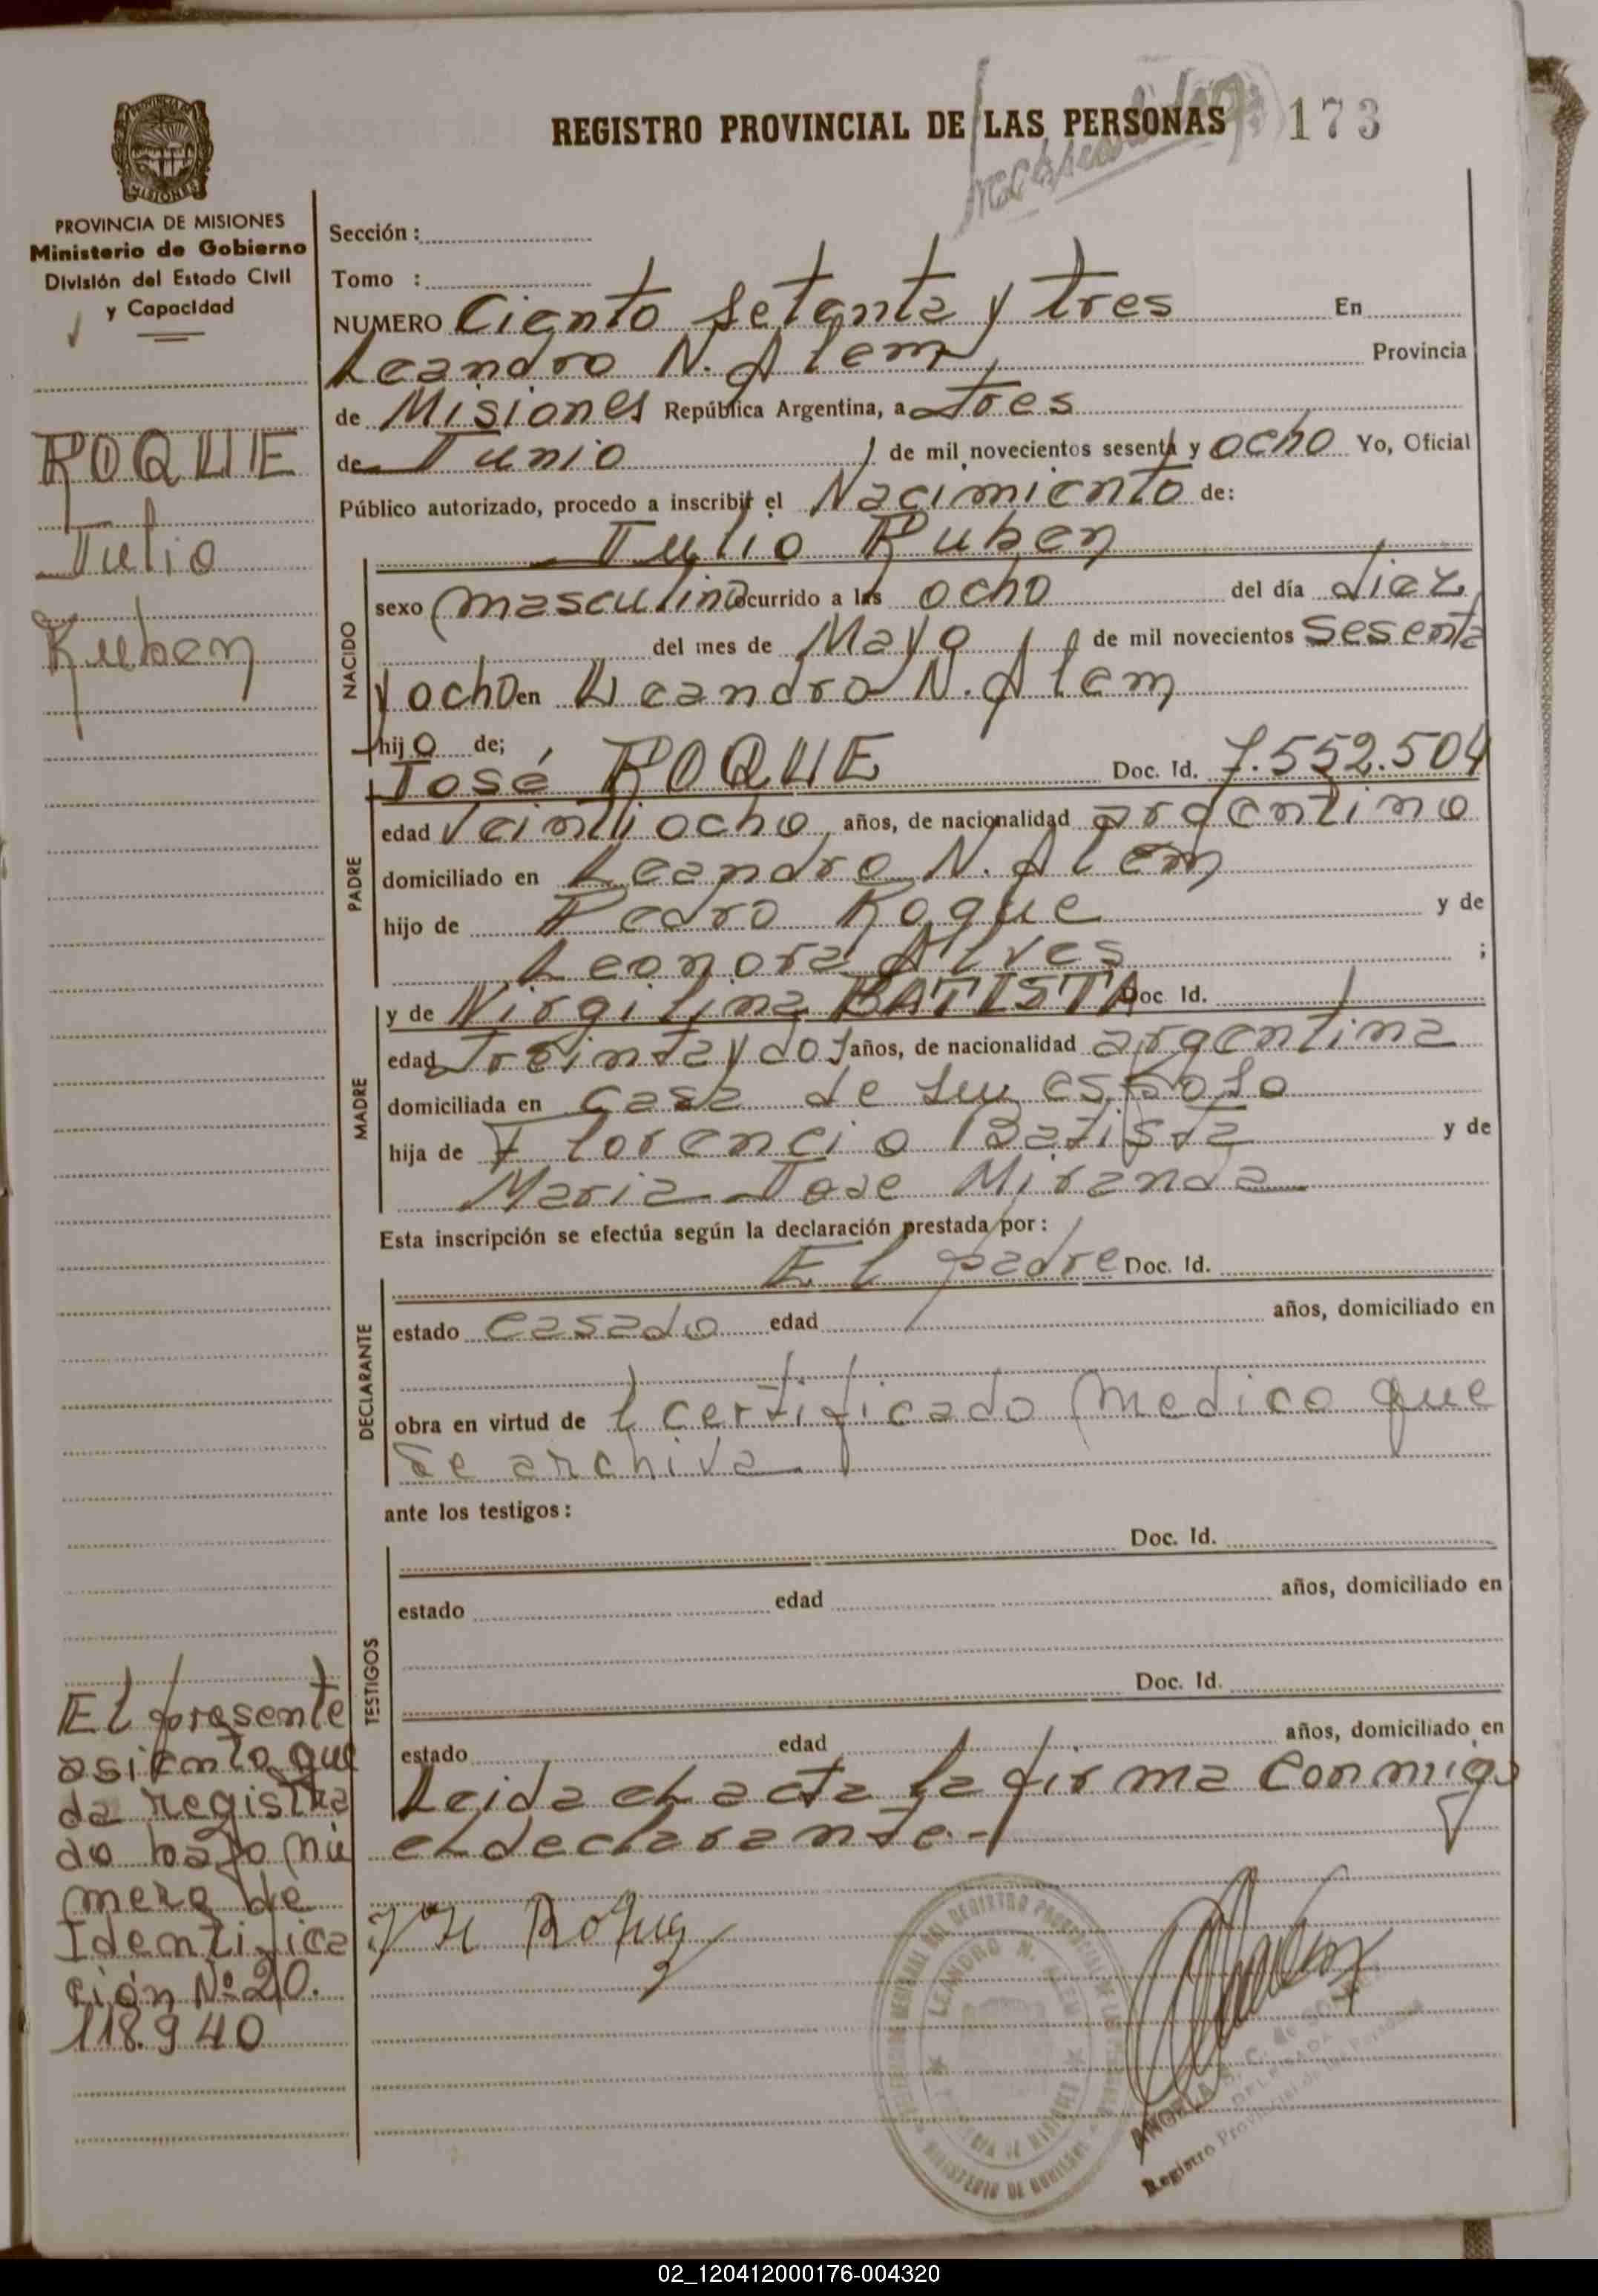 REGISTRO PROVINCIAL DE LAS PERSONAS 173
PROVINCIA DE MISIONES
Ministerio de Gobierno
División del Estado Civil
y Capacidad
ROQUE
Julio
Ruben
El presente
asiento que
da registra
do bajo nú
mero de
Identifica
ción Nº 20.
118.940
Sección :
Tomo :
NUMERO Ciento setenta y tres En
Leandro N. Alem Provincia
de Misiones República Argentina, a tres
de Junio de mil novecientos sesenta y ocho Yo, Oficial
Público autorizado, procedo a inscribir el Nacimiento de:
NACIDO
Julio Ruben
sexo masculino ocurrido a las ocho del día diez
del mes de Mayo de mil novecientos sesenta
y ocho en Leandro N. Alem
hijo de;
PADRE
José ROQUE Doc. Id. 7.552.504
edad veintiocho años, de nacionalidad argentino
domiciliado en Leandro N. Alem
hijo de Pedro Roque y de
Leonora Alves ;
MADRE
y de Virgilina BATISTA Doc Id.
edad Treinta y dos años, de nacionalidad argentina
domiciliada en casa de su esposo
hija de Florencio Batista y de
Maria Jose Miranda
Esta inscripción se efectúa según la declaración prestada por :
DECLARANTE
El padre Doc. Id.
estado casado edad años, domiciliado en
obra en virtud de l certificado medico que
se archiva
ante los testigos :
TESTIGOS
Doc. Id.
estado edad años, domiciliado en
Doc. Id.
estado edad años, domiciliado en
Leida el acta la firma conmigo
el declarante.-
Roque
LEANDRO N. ALEM
ANGELA S. C. de
DELEGADA
Registro Provincial de las Personas
02_120412000176-004320